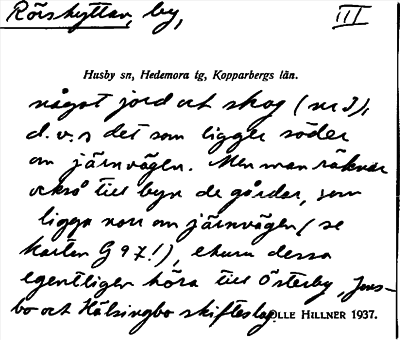 Rörshyttan, by, III
Husby sn, Hedemora tg, Kopparbergs län.
något jord och skog (nr 3),
d.v.s det som ligger söder
om järnvägen. Men man räknar
också till byn de gårdar, som
ligga norr om järnvägen (se
kartan G 97!), ehuru dessa
egentligen höra till Österby, Jons-
bo och Hälsingbo skifteslag.
OLLE HILLNER 1937.